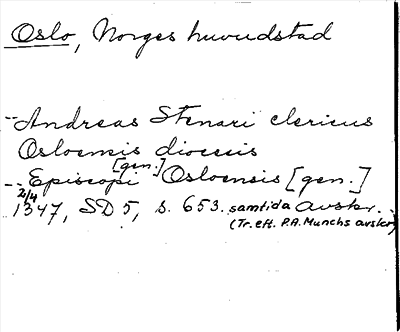 Oslo, Norges huvudstad
-- Andreas Stenari clericus
Osloensis diocesis
-- Episcopi [gen.] Osloensis [gen.]
2/4
1347, SD 5, s. 653. samtida avskr.
(Tr. eft. P.A. Munchs avskr)